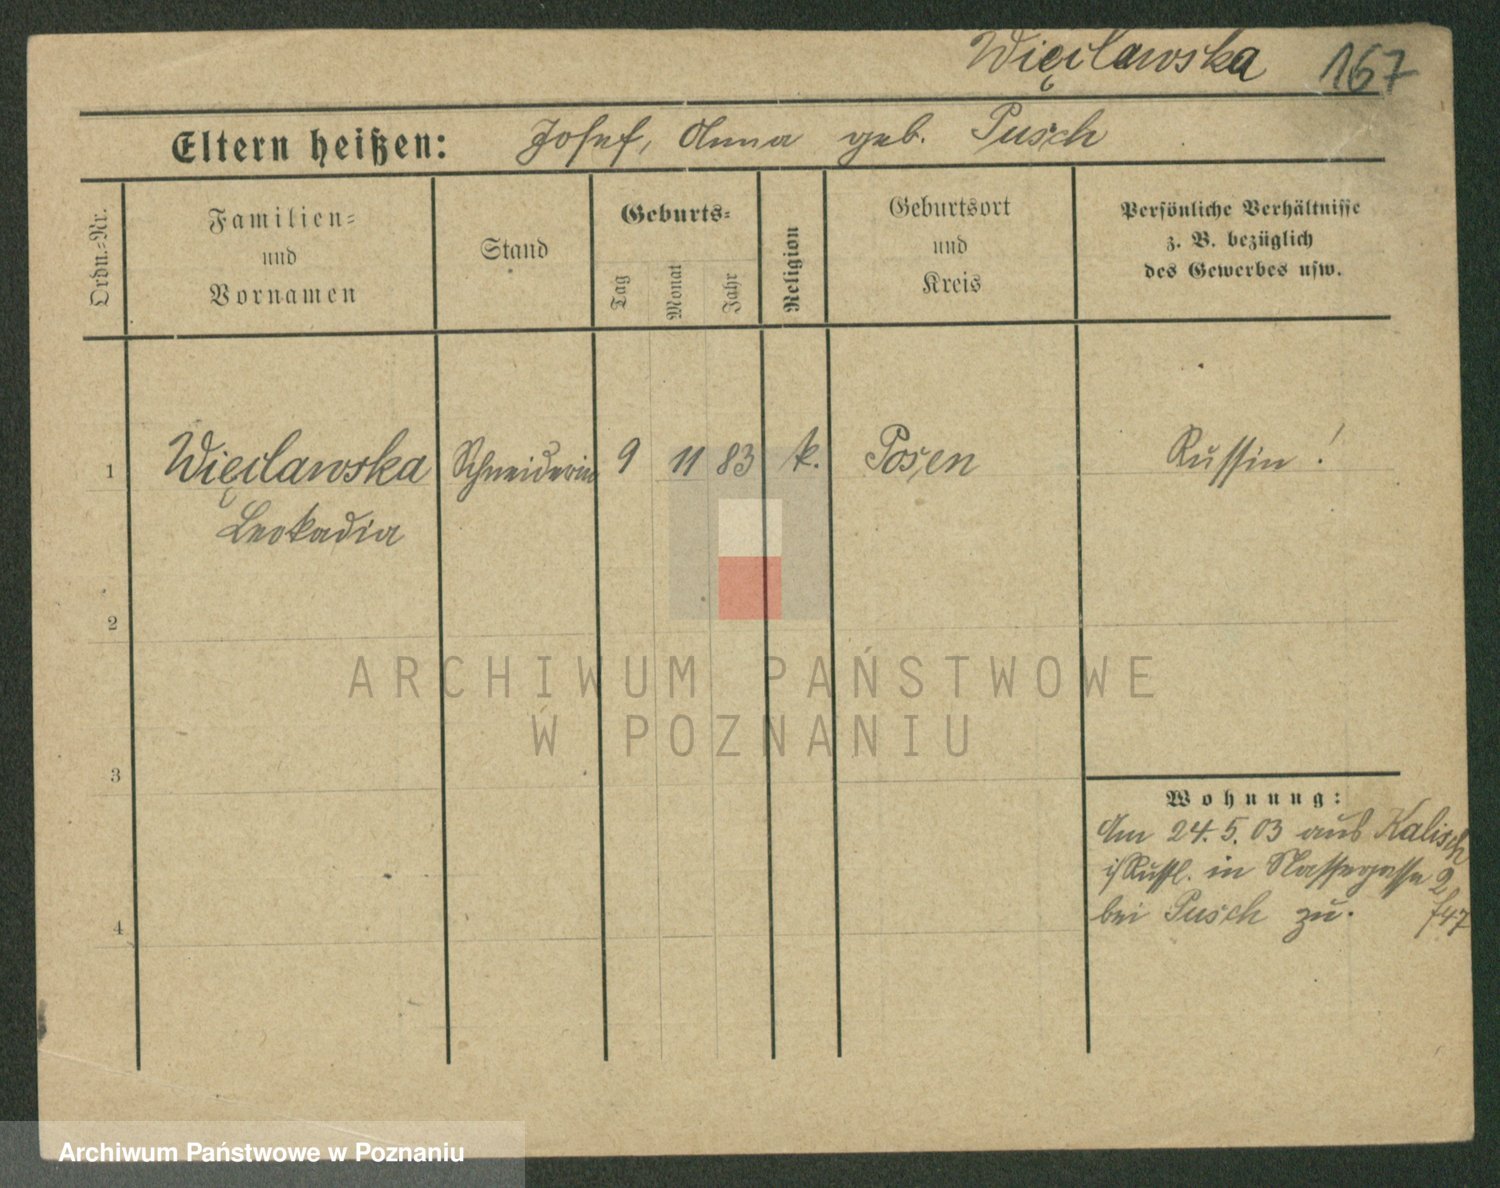 Więcławska 167
Eltern heißen: Josef, Anna geb. Pusch
Ordn.=Nr.
Familien=
und
Vornamen
Stand
Geburts=
Tag
Monat
Jahr
Religion
Geburtsort
und
Kreis
Persönliche Verhältnisse
z. B. bezüglich
des Gewerbes usw.
1 Więcławska Schneiderin 9 11 83 k. Posen Russin!
Leokadia
2
ARCHIWUM PAŃSTWOWE
W POZNANIU
3
Wohnung:
Am 24.5.03 aus Kalisch
i/Russl. in Nassegasse 2
bei Pusch zu. f47
4
Archiwum Państwowe w Poznaniu